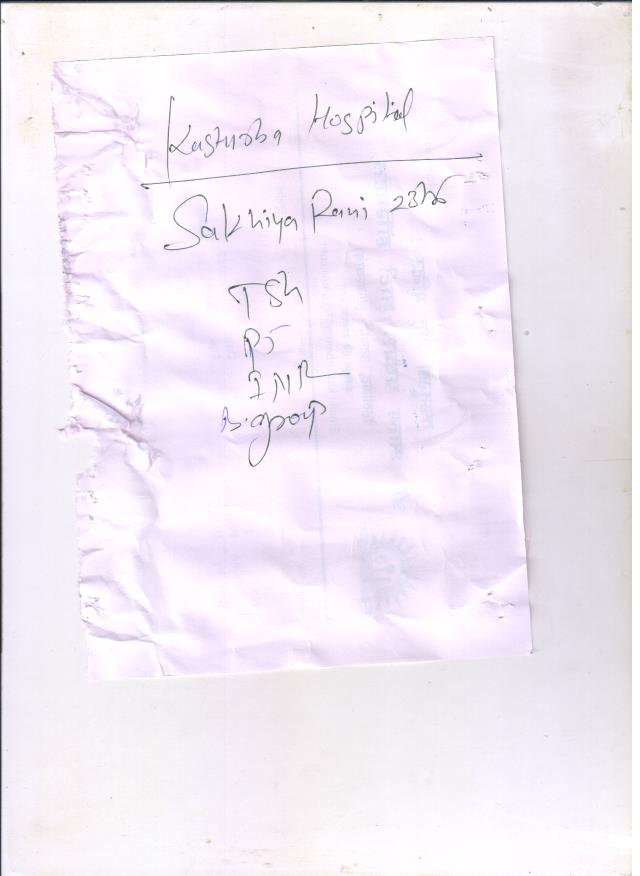 Kasturba Hospital
Sakhiya Rani
TSH
PT
INR
B.group